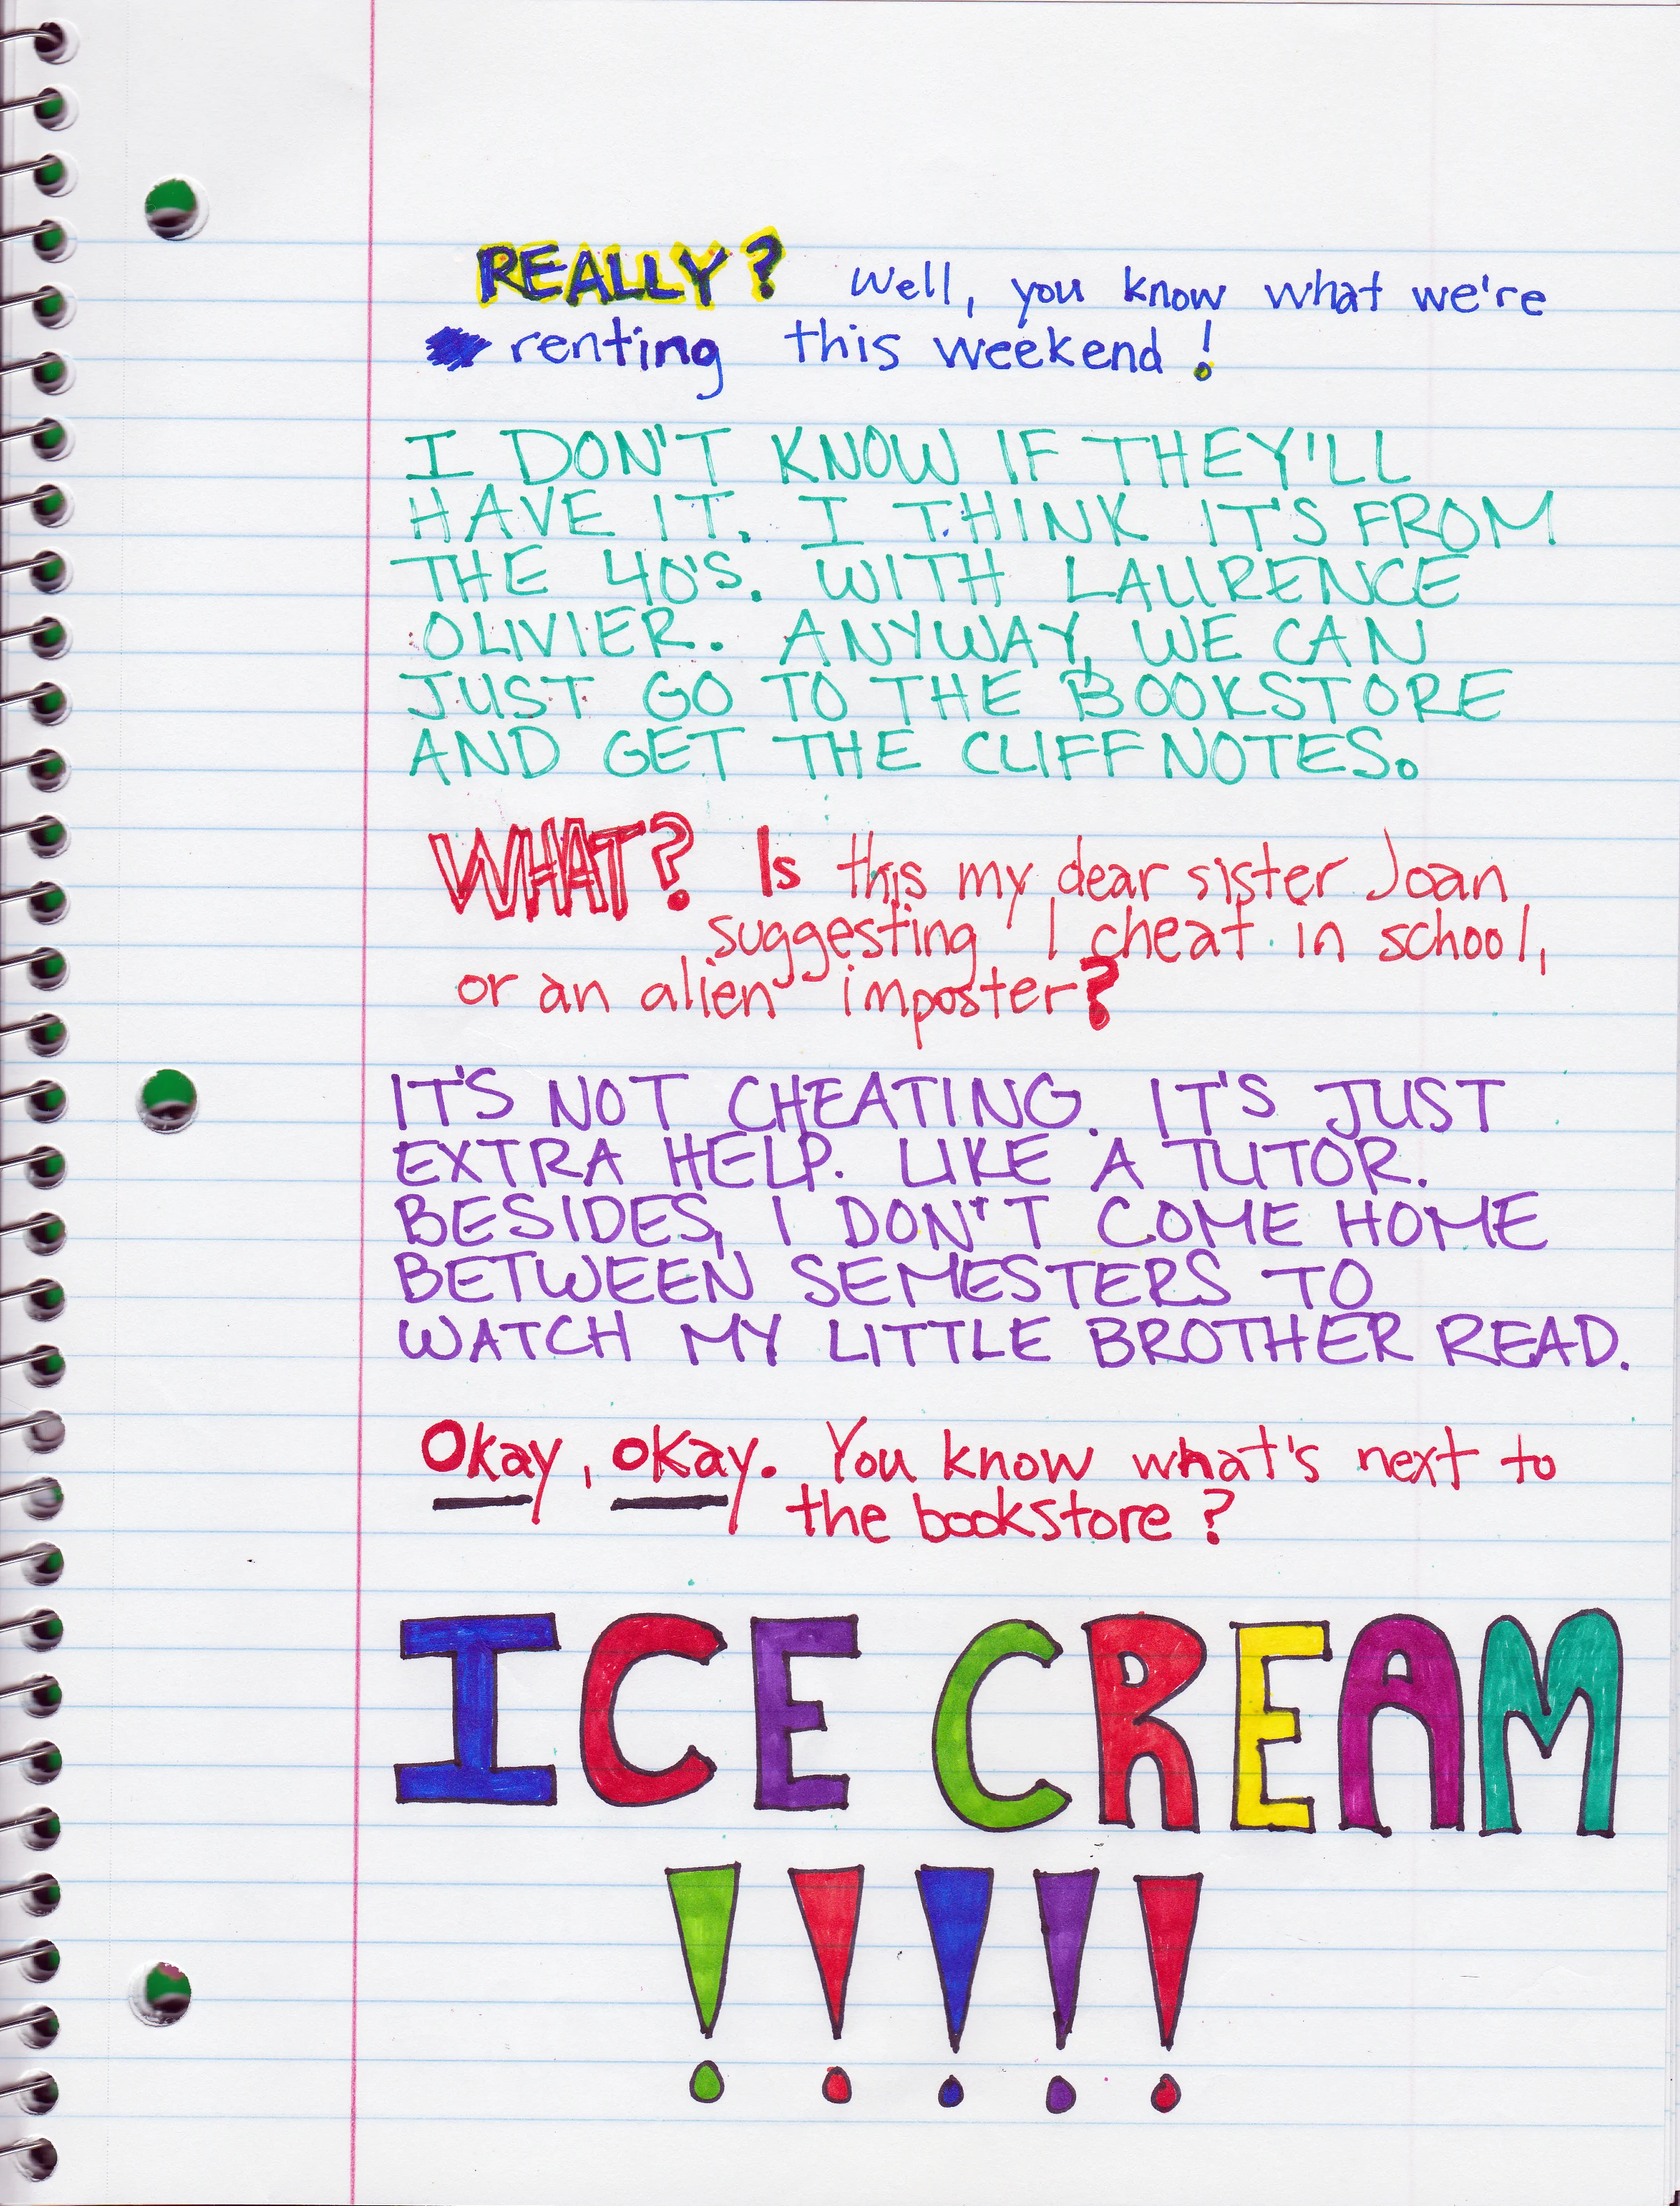 REALLY? Well, you know what we're
renting this weekend!
I DON'T KNOW IF THEY'LL
HAVE IT. I THINK IT'S FROM
THE 40'S. WITH LAURENCE
OLIVIER. ANYWAY, WE CAN
JUST GO TO THE BOOKSTORE
AND GET THE CLIFF NOTES.
WHAT? Is this my dear sister Joan
suggesting I cheat in school,
or an alien imposter?
IT'S NOT CHEATING. IT'S JUST
EXTRA HELP. LIKE A TUTOR.
BESIDES, I DON'T COME HOME
BETWEEN SEMESTERS TO
WATCH MY LITTLE BROTHER READ.
Okay, okay. You know what's next to
the bookstore?
ICE CREAM
!!!!!